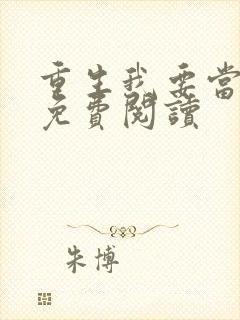 重生我要當
免費閱讀
朱博